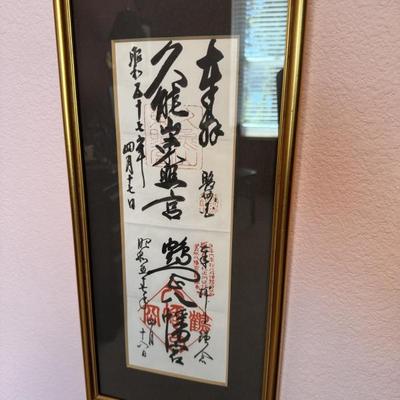 奉拝
駿河国
久能山東照宮
昭和五十七年四月十七日
奉拝
鶴岡八幡宮
昭和五十七年四月十八日